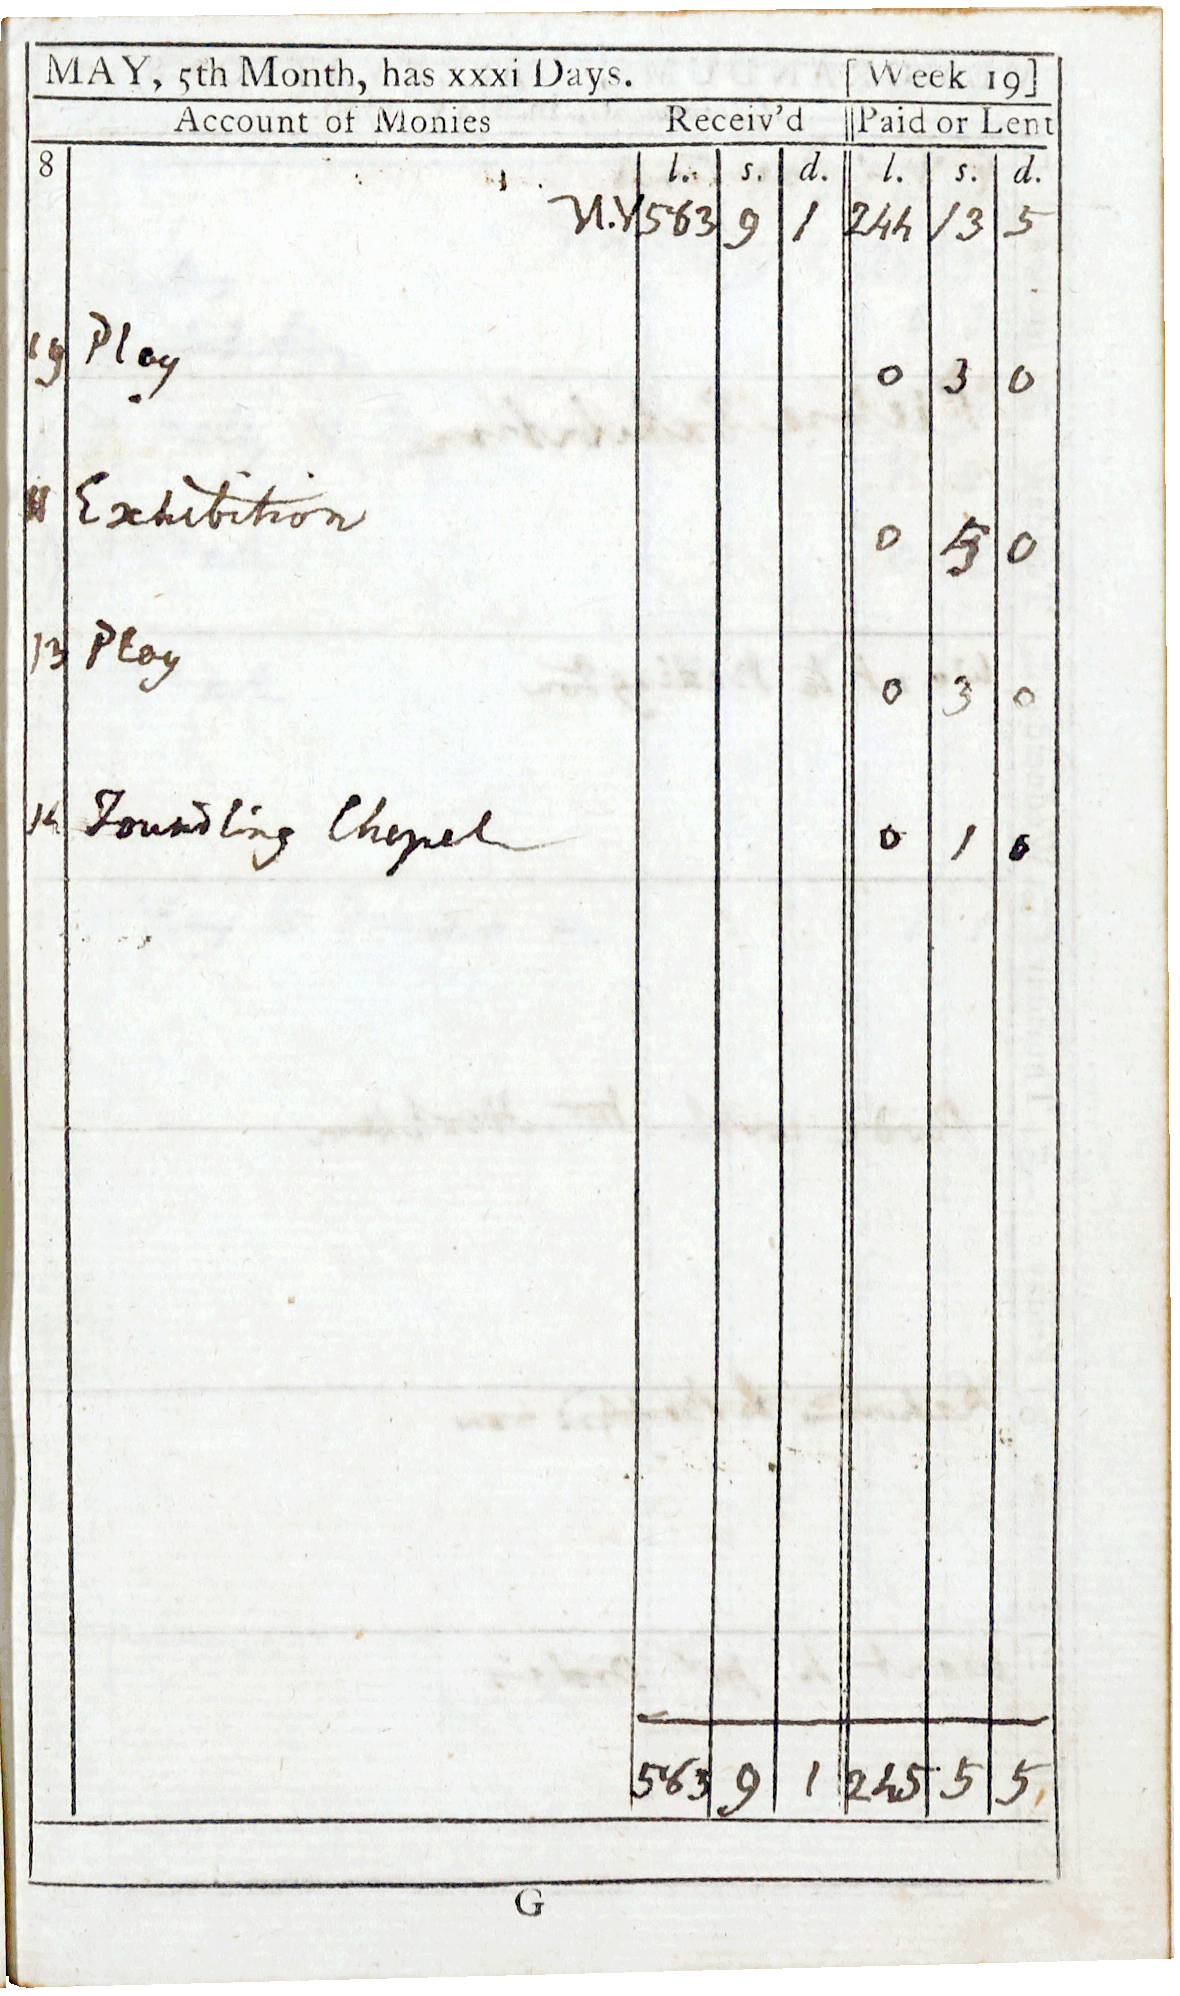 MAY, 5th Month, has xxxi Days. [Week 19]
Account of Monies Receiv'd Paid or Lent
8 l. s. d. l. s. d.
563 9 1 244 13 5
19 Play 0 3 0
11 Exhibition 0 5 0
13 Play 0 3 0
14 Foundling Chapel 0 1 0
563 9 1 245 5 5
G